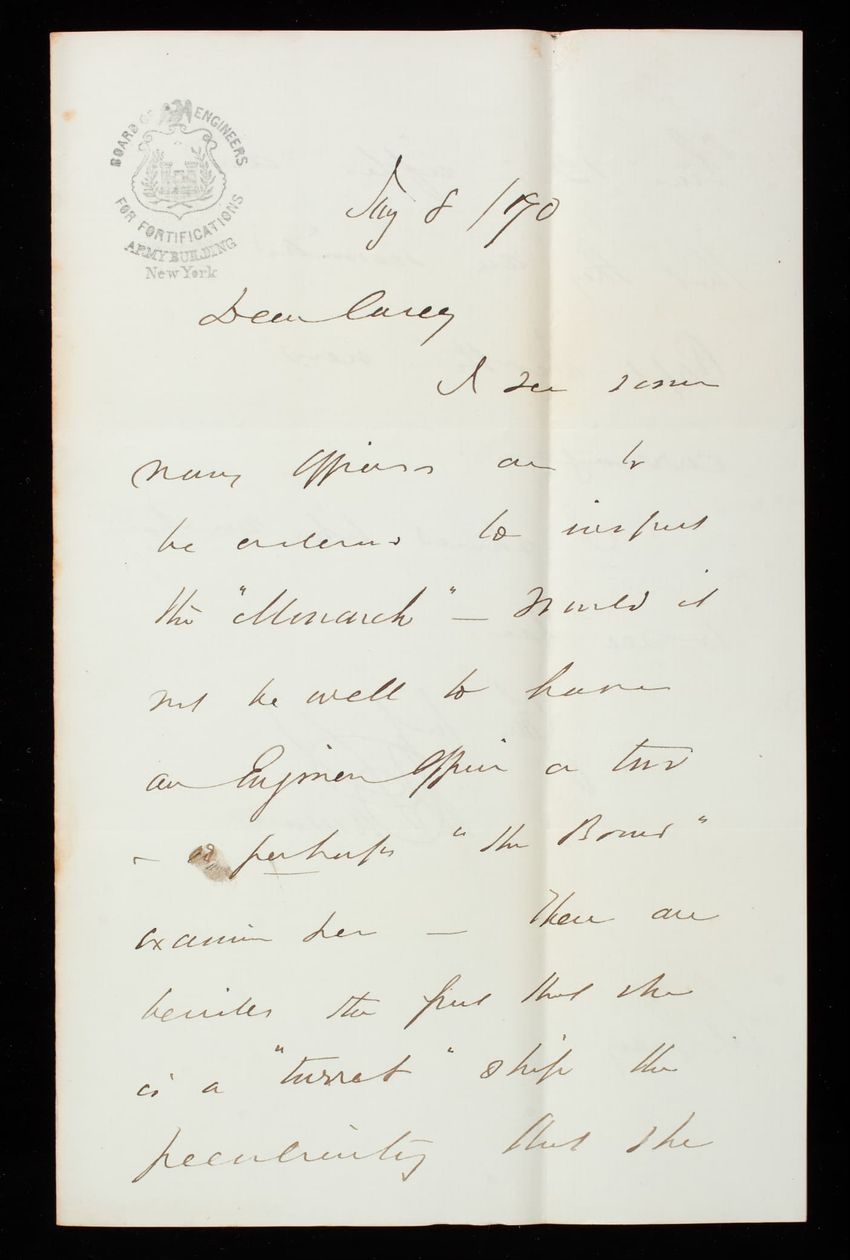 BOARD OF ENGINEERS
FOR FORTIFICATIONS
ARMY BUILDING
New York
Jany 8 /70
Dear Casey
I see some
navy officers are to
be ordered to inspect
the "Monarch" — Would it
not be well to have
an Engineer Officer or two
— or perhaps "the Board"
examine her — There are
besides the fact that she
is a "turret" ship the
peculiarity that she